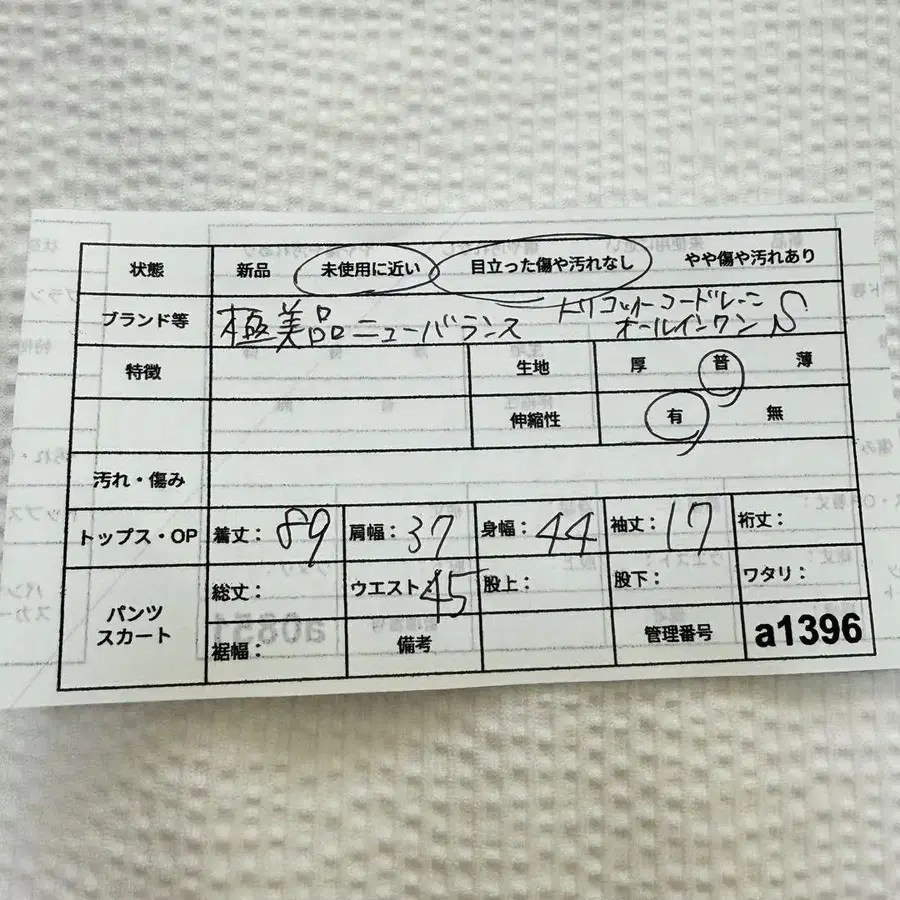 状態 新品 未使用に近い 目立った傷や汚れなし やや傷や汚れあり
ブランド等 極美品 ニューバランス トリコットコードレーン
オールインワン S
特徴 生地 厚 普 薄
伸縮性 有 無
汚れ・傷み
トップス・OP 着丈: 89 肩幅: 37 身幅: 44 袖丈: 17 裄丈:
パンツ
スカート
総丈: ウエスト: 45 股上: 股下: ワタリ:
裾幅: 備考 管理番号 a1396